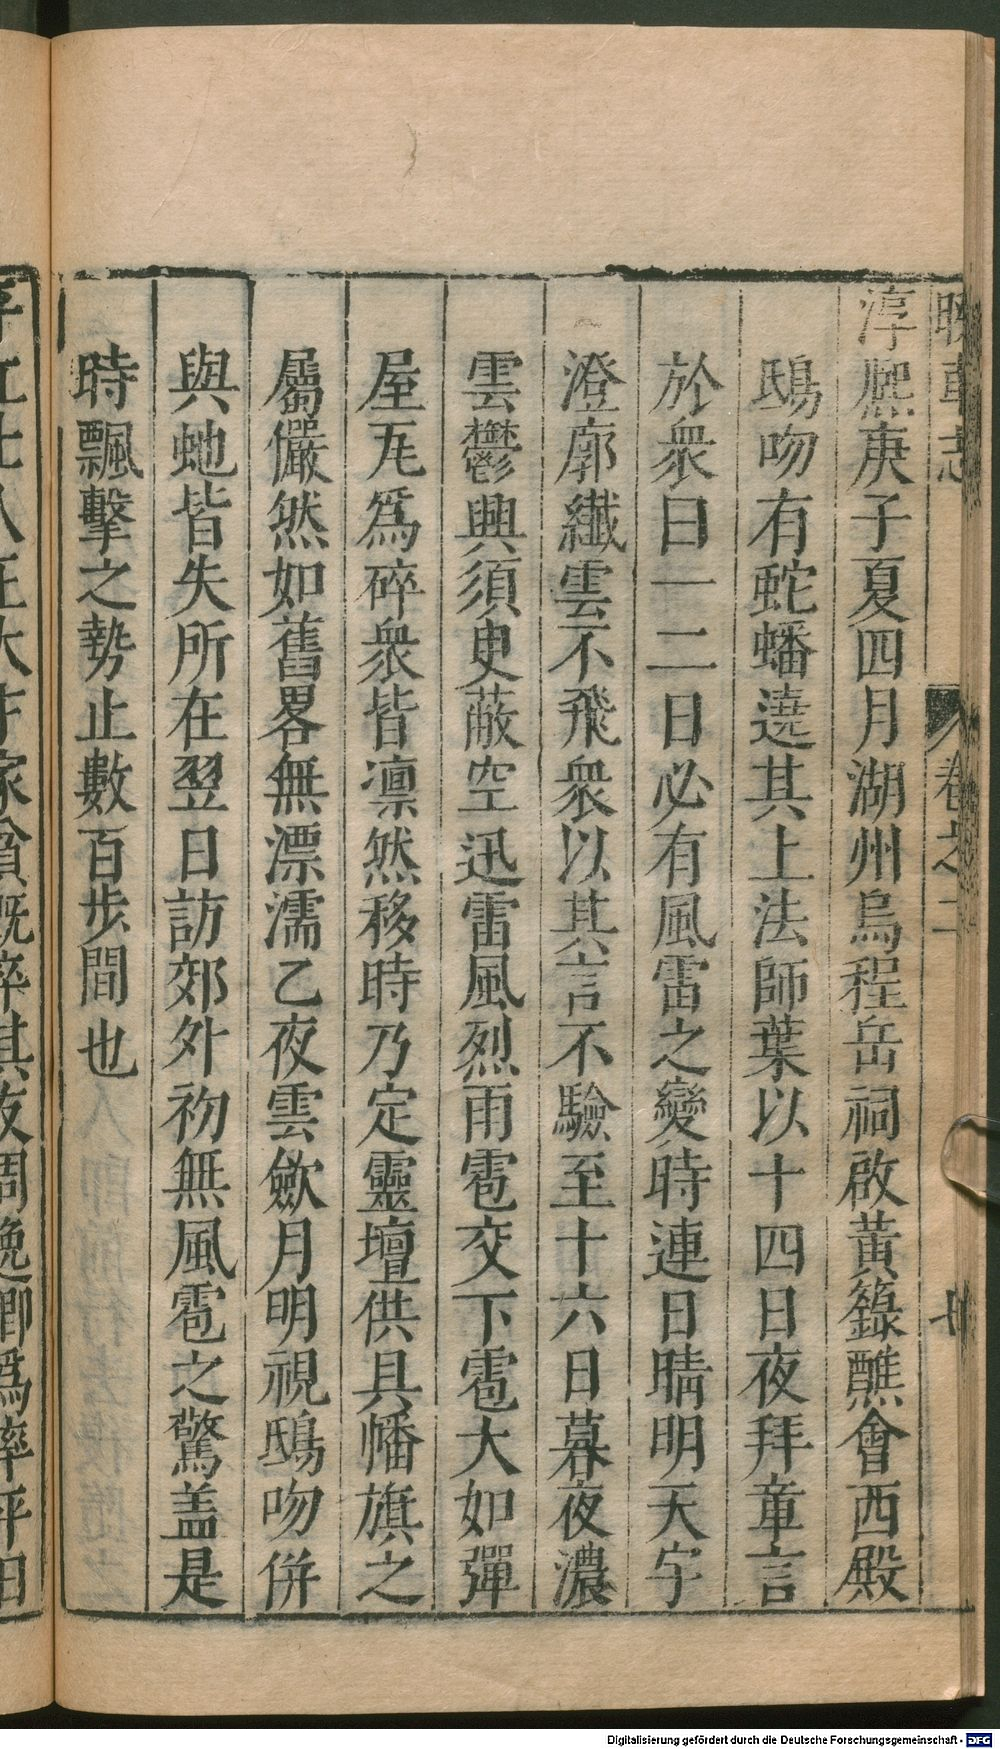 睽車志 卷之二
淳熙庚子夏四月湖州烏程岳祠啟黃籙醮會西殿
鴟吻有蛇蟠遶其上法師葉以十四日夜拜章言
於衆曰一二日必有風雷之變時連日晴明天宇
澄廓纖雲不飛衆以其言不驗至十六日暮夜濃
雲鬱興須臾蔽空迅雷風烈雨雹交下雹大如彈
屋瓦爲碎衆皆凛然移時乃定靈壇供具幡旗之
屬儼然如舊畧無漂濡乙夜雲歛月明視鴟吻併
與虵皆失所在翌日訪郊外初無風雹之驚盖是
時飄擊之勢止數百步間也
Digitalisierung gefördert durch die Deutsche Forschungsgemeinschaft - DFG